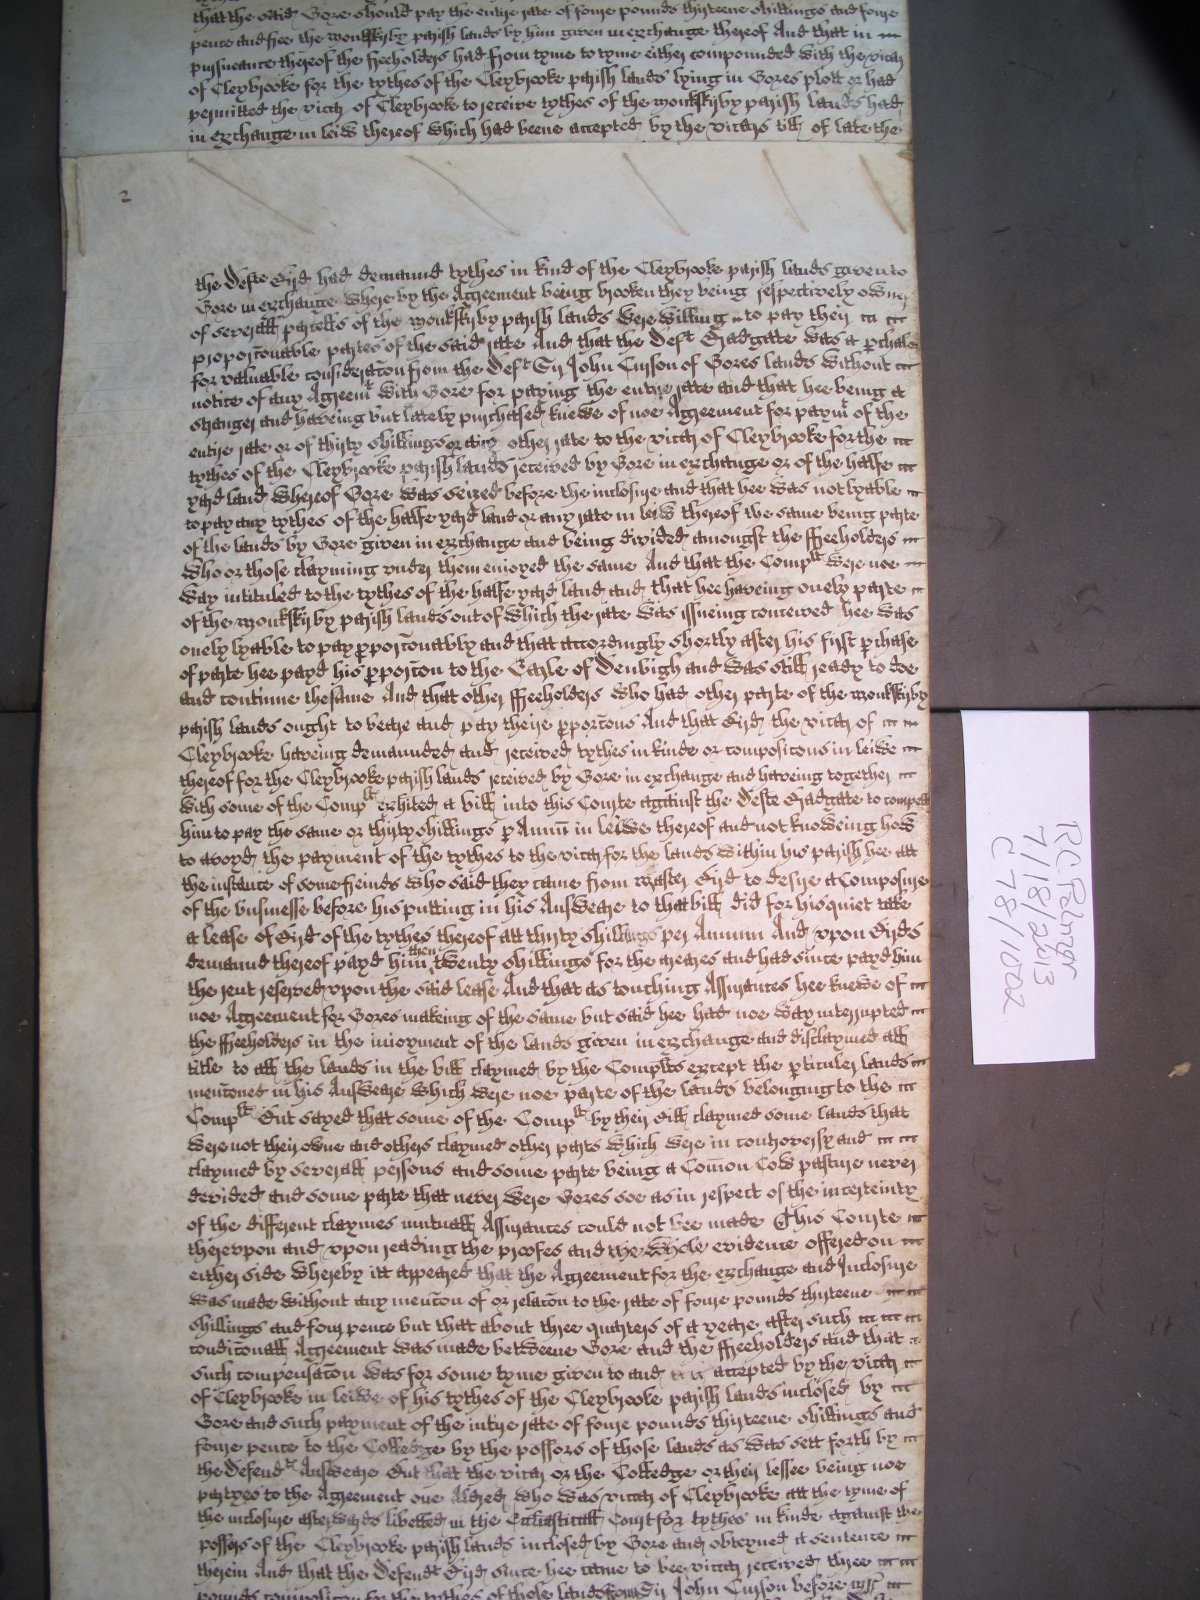 that the said Gore should pay the entire rate of foure pounds thirteene shillings and foure
pence and free the Monkskirby parish lands by him given in exchange thereof And that in
pursueance thereof the freeholders had from tyme to tyme either compounded with the vicar
of Cleybrooke for the tythes of the Cleybrooke parish lands lying in Gores plott or had
permitted the vicar of Cleybrooke to receive tythes of the Monkskirby parish lands had
in exchange in leiw thereof which had beene accepted by the vicars till of late the
2
the Defte had demaund tythes in kind of the Cleybrooke parish lands given to
Gore in exchange where by the Agreement being brooken they being respectively owners
of severall parcells of the Monkskirby parish lands were willing to pay their
proporconable partes of the said rate And that the Deft Gadgate was a pchaser
for valuable consideracon from the Deft Sr John Curson of Gores lands without
notice of any Agreemt with Gore for paying the entire rate and that hee being a
stranger and haveing but lately purchased knewe of noe Agreement for paymt of the
entire rate or of thirty shillings or any other rate to the vicar of Cleybrooke for the
tythes of the Cleybrooke parish lands received by Gore in exchange or of the halfe
yard land whereof Gore was seized before the inclosure and that hee was not lyable
to pay any tythes of the halfe yard land or any rate in leiw thereof the same being parte
of the lands by Gore given in exchange and being divided amongst the ffreeholders
who or those clayming under them enioyed the same And that the Complts were noe
way intituled to the tythes of the halfe yard land and that hee haveing onely parte
of the Monkskirby parish lands out of which the rate was issueing conceived hee was
onely lyable to pay pporconably and that accordingly shortly after his first pchase
of parte hee payd his pporcon to the Earle of Denbigh and was still ready to doe
and continue the same And that other ffreeholders who had other parte of the Monkskirby
parish lands ought to beare and pay theire pporcons And that the vicar of
Cleybrooke haveing demaunded and received tythes in kinde or composicons in leiwe
thereof for the Cleybrooke parish lands received by Gore in exchange and haveing together
with some of the Complts exhited a bill into this Courte against the Defte Gadgate to compell
him to pay the same or thirty shillings p Annu in leiwe thereof and not knoweing how
to avoyd the payment of the tythes to the vicar for the lands within his parish hee att
the instance of some freinds who said they came from Master to desire a Composure
of the business before his putting in his Answeare to that bill did for his quiet take
a lease of the tythes thereof att thirty shillings per Annum And upon
demaund thereof payd him then twenty shillings for the areares and had since payd him
the rent reserved upon the said lease And that as touching Assurances hee knewe of
noe Agreement for Gores makeing of the same but said hee had noe way interrupted
the ffreeholders in the inioyment of the lands given in exchange and disclaymed all
title to all the lands in the bill claymed by the Complts except the pticuler lands
menconed in his Answeare which were noe parte of the lands belonging to the
Complts But sayed that some of the Complts by their Bill claymed some lands that
were not their owne and others claymed other parts which were in controversy and
claymed by severall persons and some parte being a Comon Cow pasture never
devided and some parte that never were Gores soe as in respect of the incerteinty
of the different claymes mutuall Assurances could not bee made This Courte
thereupon and upon reading the proofes and the whole evidence offered on
either side whereby itt appeared that the Agreement for the exchange and Inclosure
was made without any mencon of or relacon to the rate of foure pounds thirteene
shillings and four pence but that about three quarters of a yeare after such
condiconall Agreement was made betweene Gore and the ffreeholders and that
such compensacon was for some tyme given to and accepted by the vicar
of Cleybrooke in leiwe of his tythes of the Cleybrooke parish lands inclosed by
Gore and such payment of the intire rate of foure pounds thirteene shillings and
foure pence to the Colledge by the possors of those lands as was sett forth by
the Defendts Answeare But that the vicar or the Colledge or their lessee being noe
partyes to the Agreement one who was vicar of Cleybrooke att the tyme of
the inclosure afterwards libelled in the Court for tythes in kinde against the
possors of the Cleybrooke parish lands inclosed by Gore and obteyned a sentence
therein And that the Defendt since hee came to bee vicar received three
pounds composicon for the tythes of those lands from Sr John Curson before
RC Palmer
7/18/2013
C 78/1022